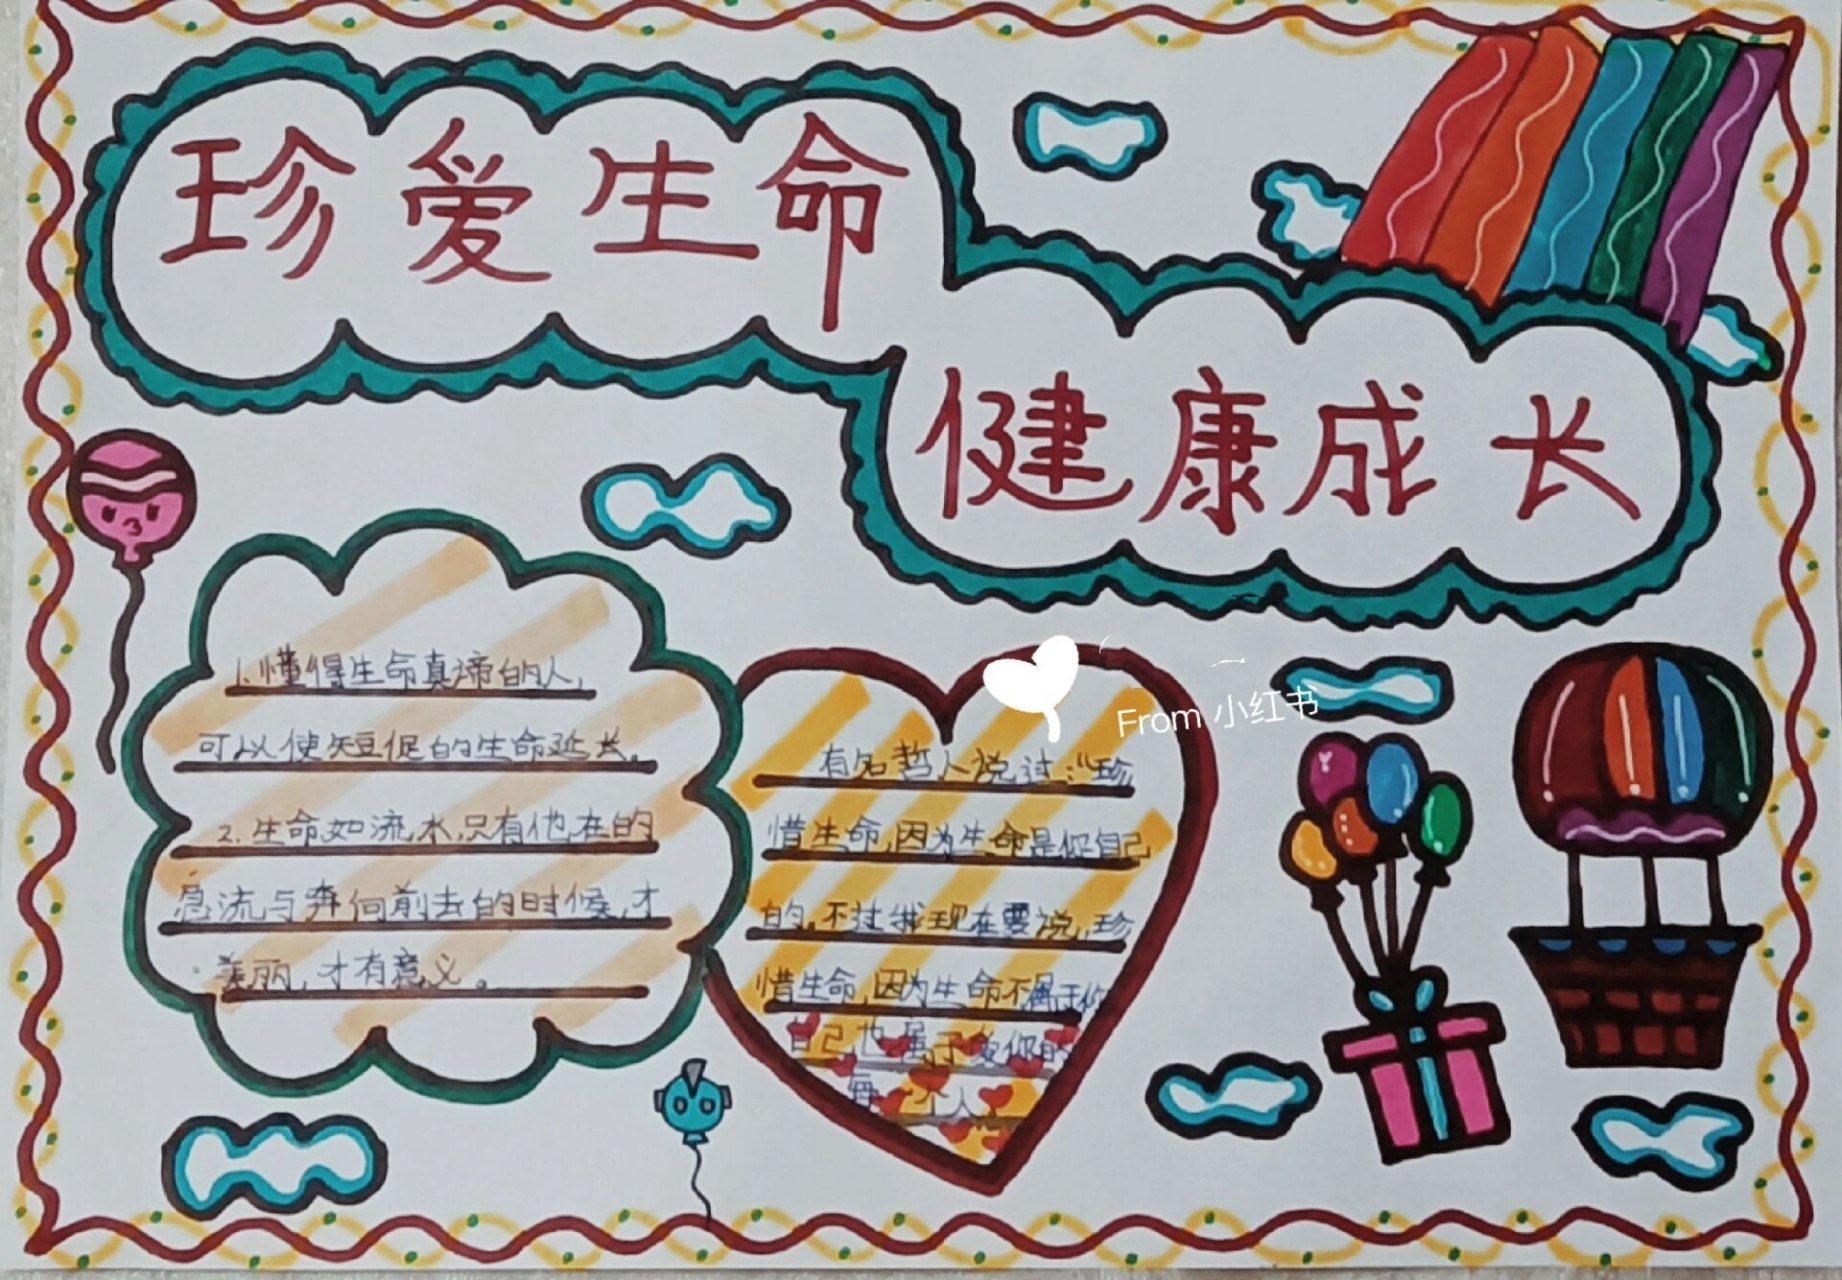 珍爱生命
健康成长
1.懂得生命真谛的人,
可以使短促的生命延长。
2.生命如流水,只有他在的
急流与奔向前去的时候,才
美丽,才有意义。
From 小红书
有名哲人说过:“珍
惜生命,因为生命是你自己
的,不过我现在要说,珍
惜生命,因为生命不属于你
自己,也属于爱你的
每一个人